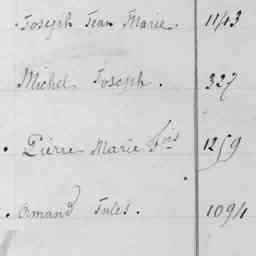 Joseph Jean Marie. 1143
Michel Joseph. 327
Pierre Marie fois 1259
Armand Jules. 1094